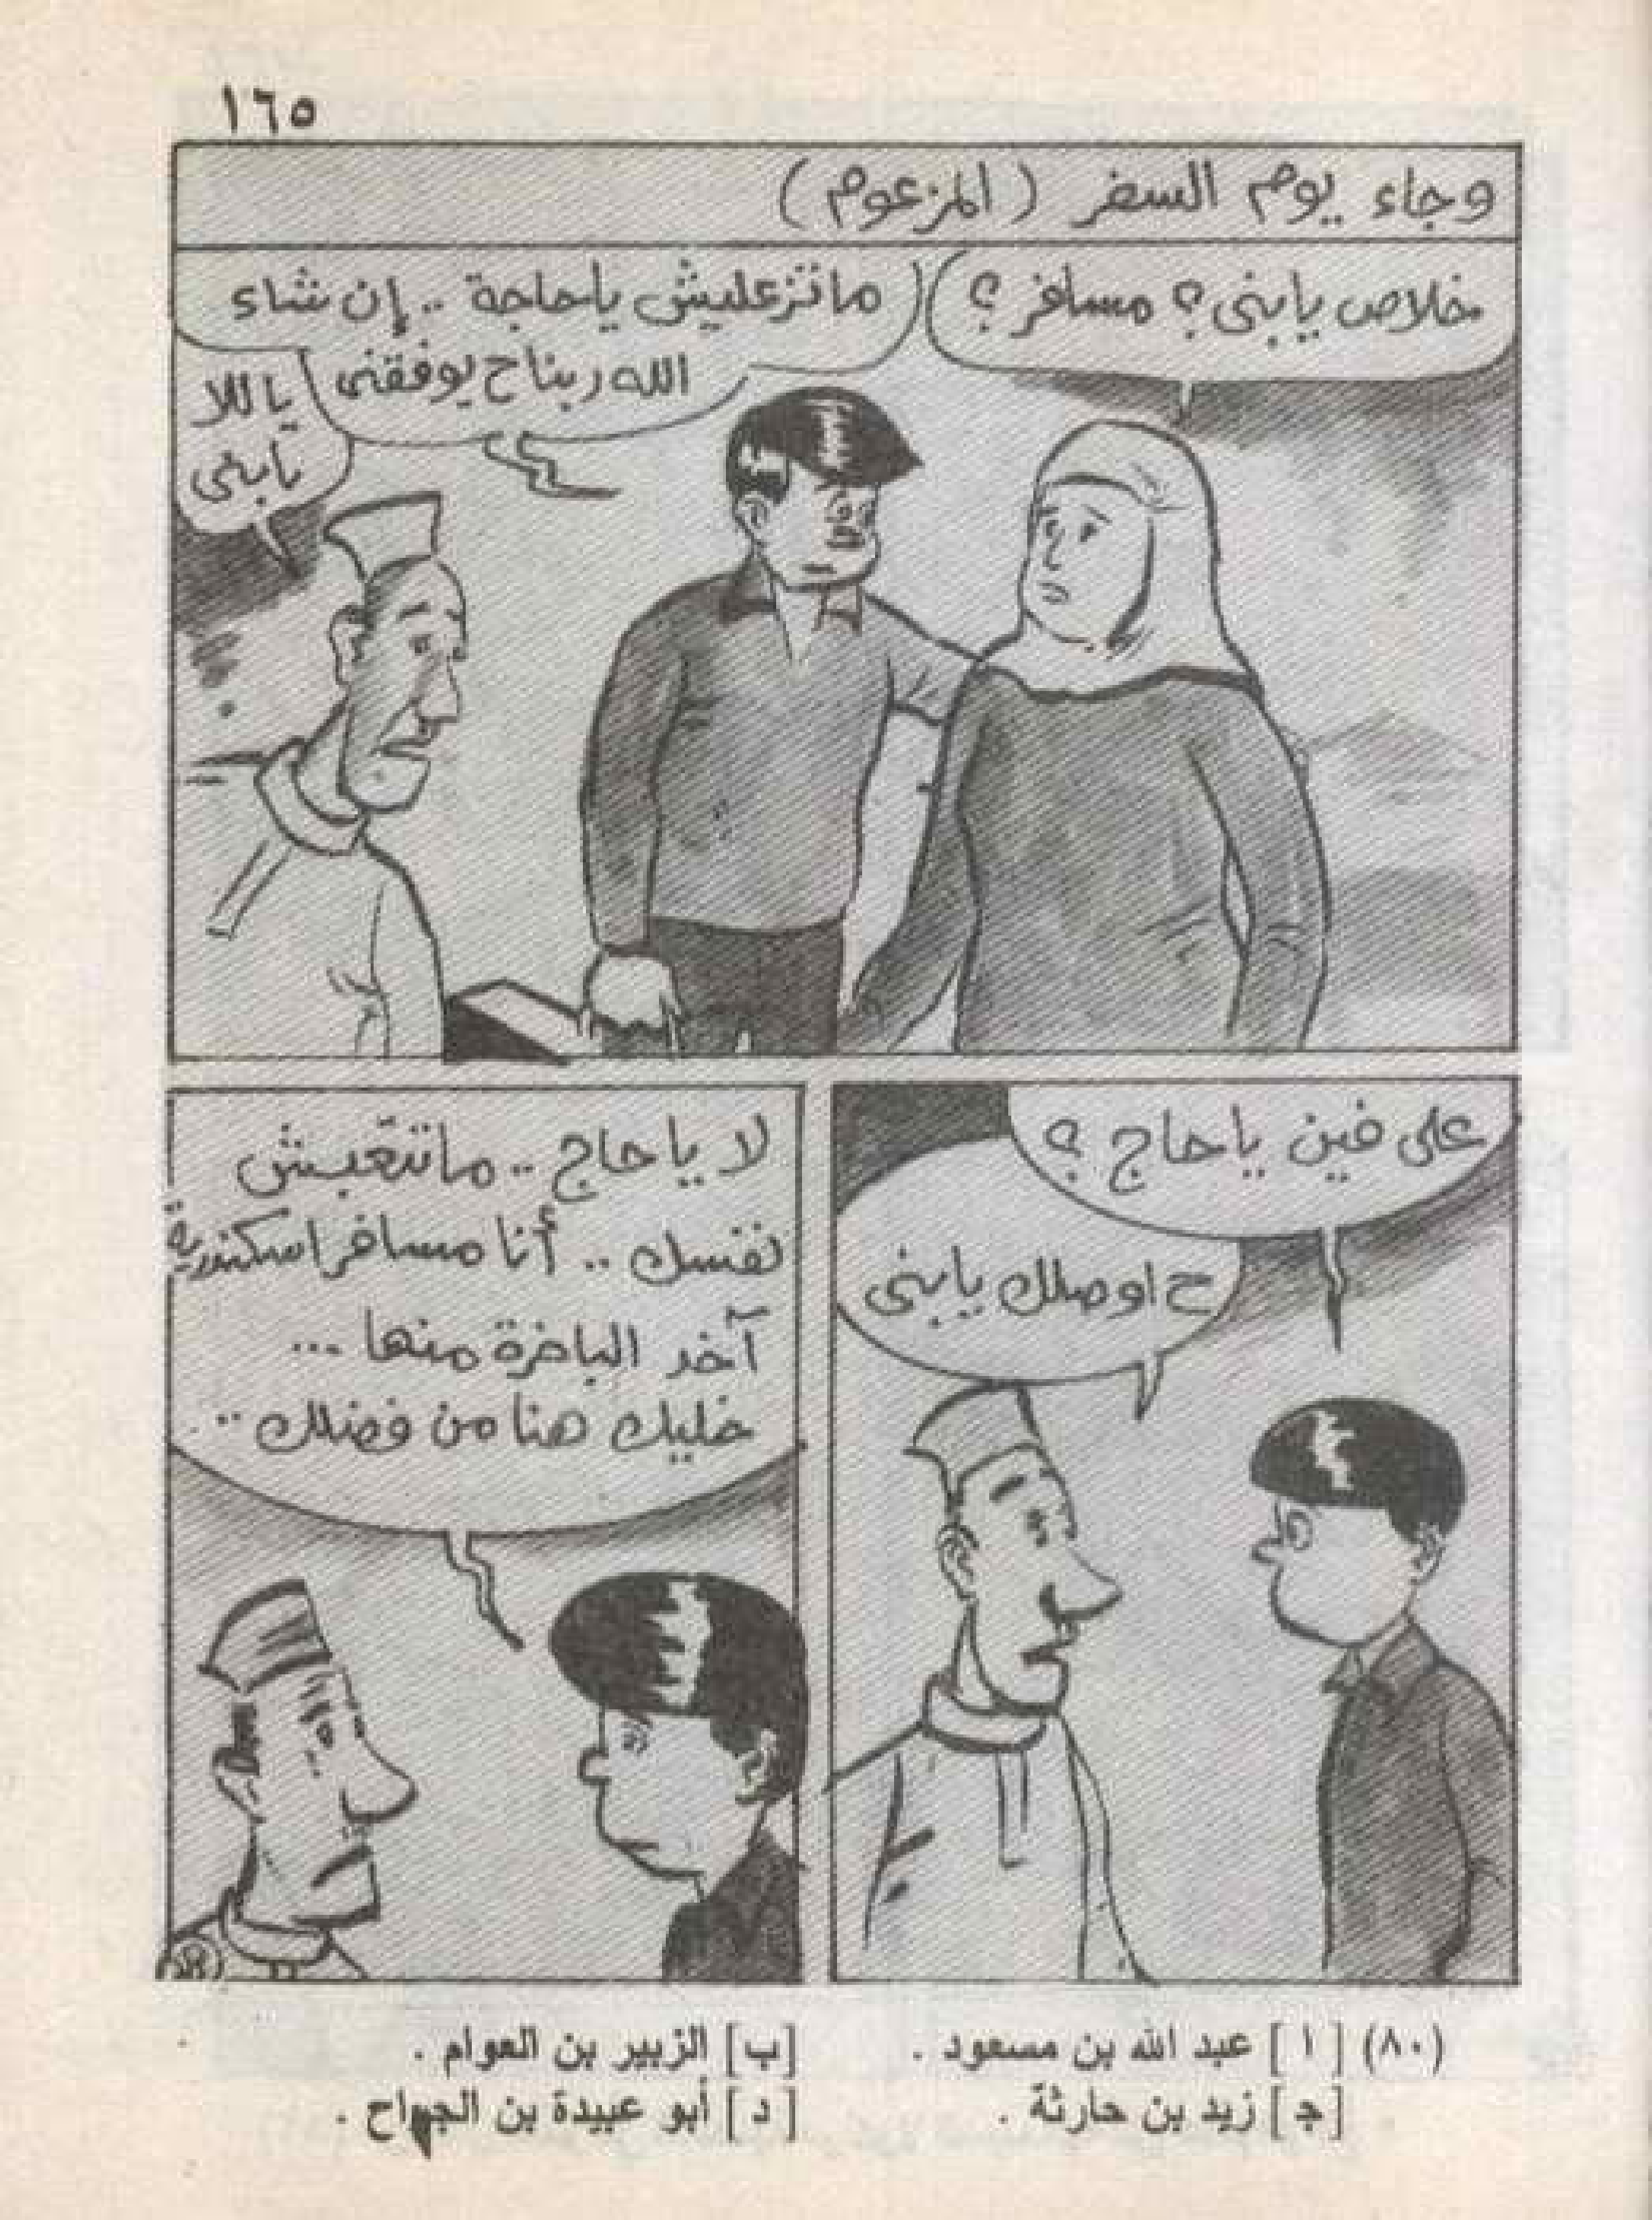 ١٦٥
وجاء يوم السفر (المزعوم)
خلاص يابنى؟ مسافر؟
ماتزعليش ياحاجة .. إن شاء
الله ربنا ح يوفقنى
ياللا
يابنى
على فين ياحاج؟
ح اوصلك يابنى
لا ياحاج .. ماتتعّبش
نفسك .. أنا مسافر اسكندرية
آخد الباخرة منها ...
خليك هنا من فضلك ..
(٨٠) [ ا ] عبد الله بن مسعود .
[ب] الزبير بن العوام .
[ج] زيد بن حارثة .
[ د ] أبو عبيدة بن الجراح .